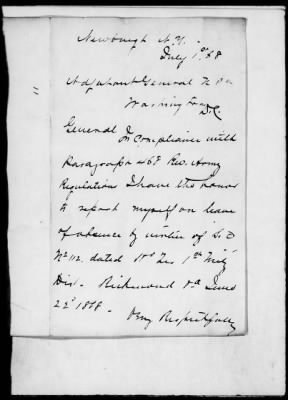 Newburgh N.Y.
July 1st 68
Adjutant General U S A
Washington D.C.
General In compliance with
Paragraph 468 Rev. Army
Regulation I have the honor
to report myself on leave
of absence by virtue of S.O
No 112. dated Hd Qrs 1st Mily
Dis. Richmond Va June
22d 1868.
Very Respectfully